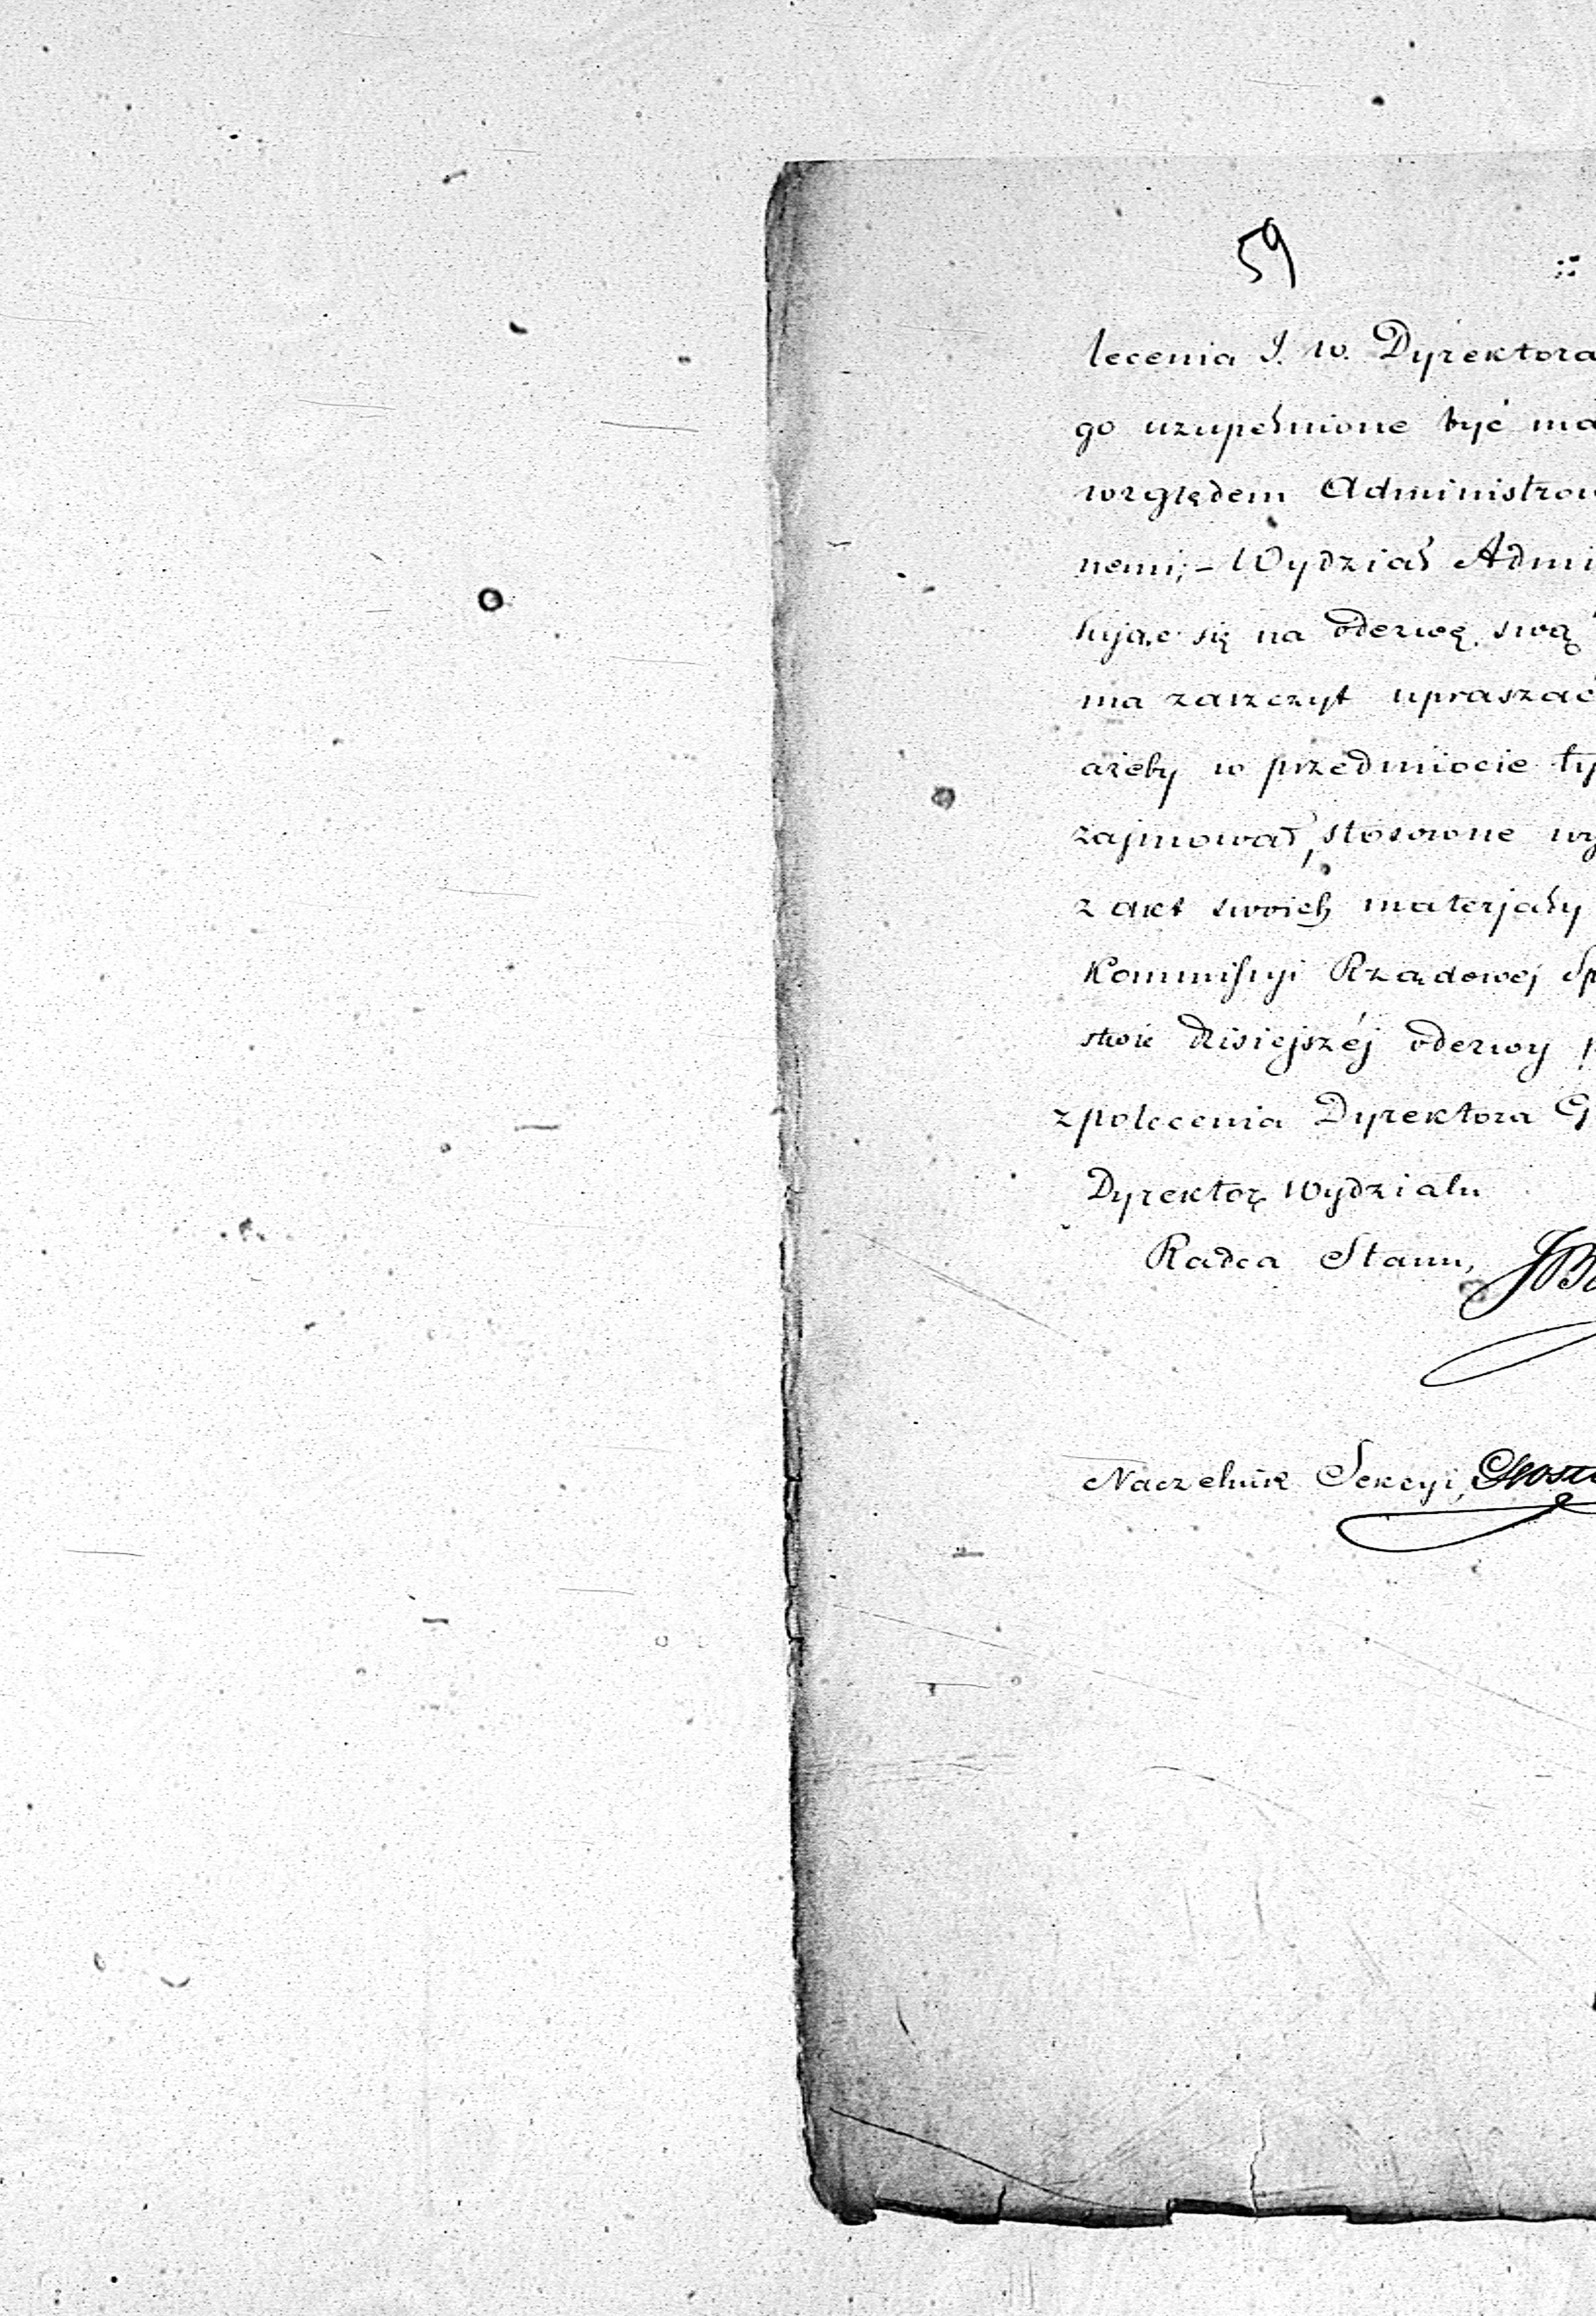 59
lecenia J. W. Dyrektora
go uzupełnione być ma
względem Administrow
nemi; – Wydział Admi
sując się na odezwę swą
ma zaszczyt upraszać
ażeby w przedmiocie ty
zajmował, stosowne wy
z akt swoich materjały
Kommissyi Rządowej Sp
dzisiejszéj odezwy
z polecenia Dyrektora G
Dyrektor Wydziału
Radca Stanu,
Naczelnik Sekcyi,